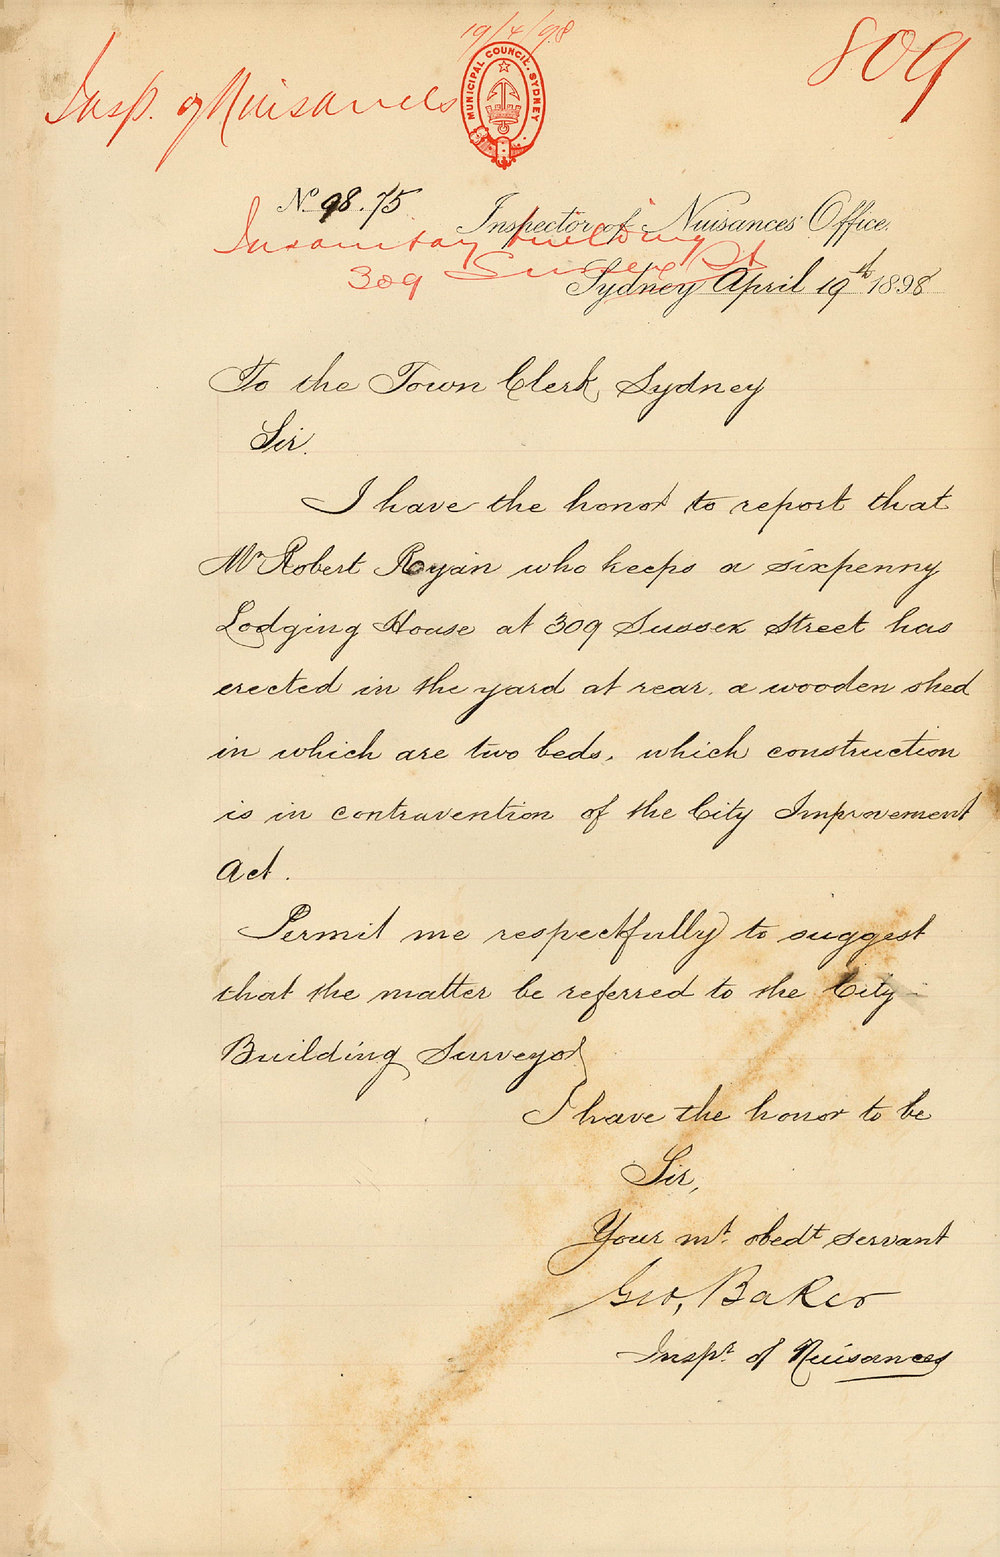 19/4/98
809
Insp. of Nuisances
MUNICIPAL COUNCIL, SYDNEY
No. 98.75
Inspector of Nuisances Office.
Insanitary building
309 Sussex St
Sydney April 19th 1898
To the Town Clerk, Sydney
Sir.
I have the honor to report that
Mr Robert Ryan who keeps a sixpenny
Lodging House at 309 Sussex Street has
erected in the yard at rear, a wooden shed
in which are two beds, which construction
is in contravention of the City Improvement
Act.
Permit me respectfully to suggest
that the matter be referred to the City
Building Surveyor
I have the honor to be
Sir,
Your mt. obedt servant
Geo, Baker
Inspr. of Nuisances